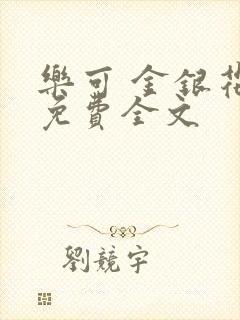 樂可 金銀花
免費全文
劉競宇